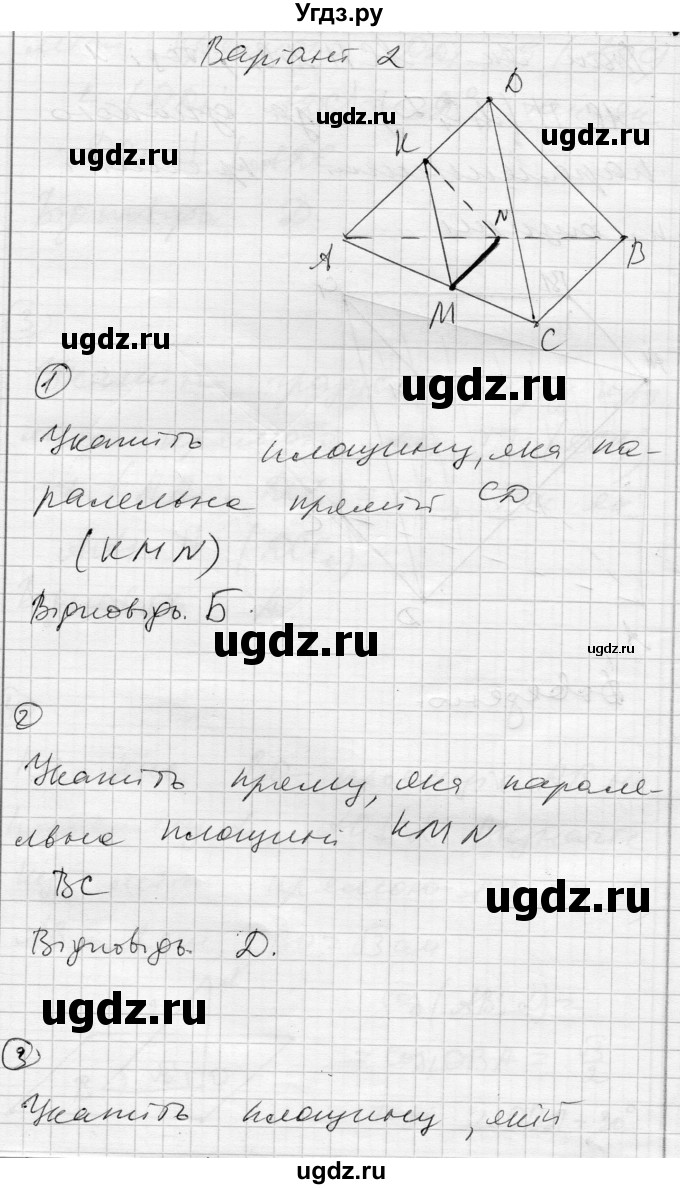 Угдз.ру
Варіант 2
ugdz.ru
ugdz.ru
ugdz.ru
D
K
N
A
B
M
C
ugdz.ru
ugdz.ru
1
Укажіть площину, яка па-
ралельна прямій CD
(KMN)
Відповідь. Б.
ugdz.ru
ugdz.ru
2
Укажіть пряму, яка парале-
льна площині KMN
BC
ugdz.ru
Відповідь. Д.
ugdz.ru
3
Укажіть площину, якій
ugdz.ru